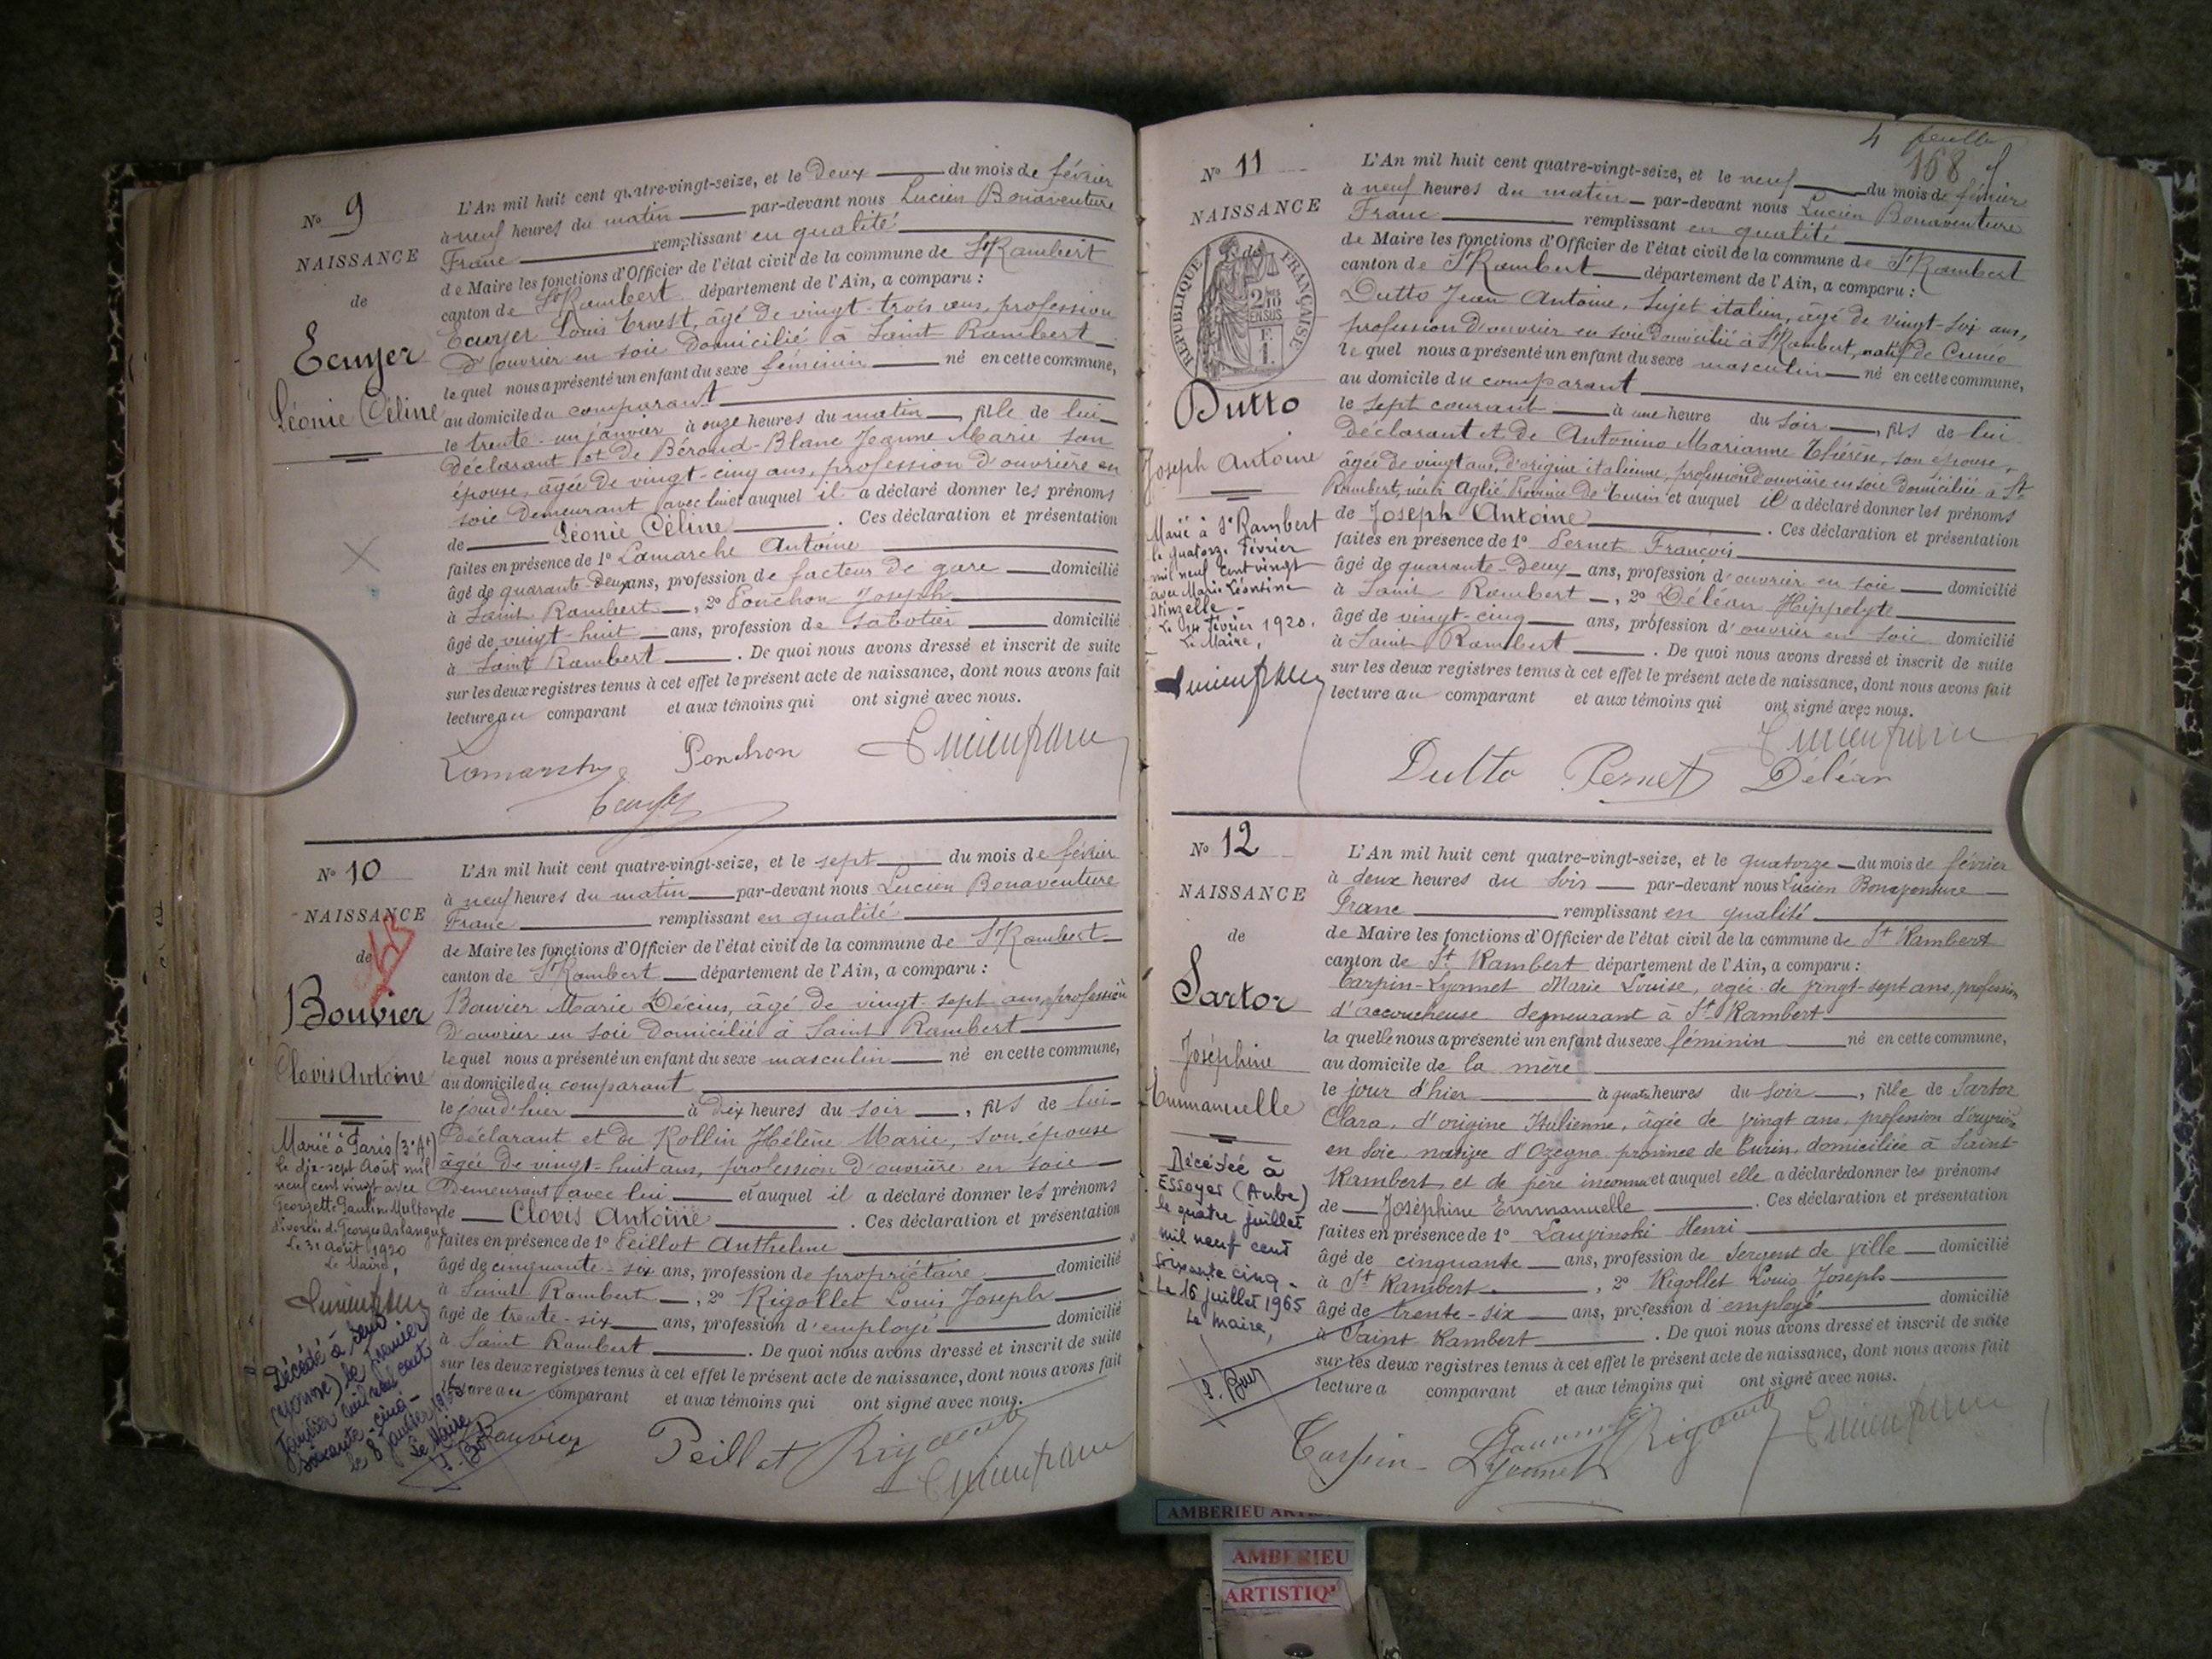 No 9
NAISSANCE
de
Ecuyer
Léonie Céline
L'An mil huit cent quatre-vingt-seize, et le Deux du mois de février
à neuf heures du matin par-devant nous Lucien Bonaventure
Franc remplissant en qualité
de Maire les fonctions d'Officier de l'état civil de la commune de St Rambert
canton de St Rambert département de l'Ain, a comparu :
Ecuyer Louis Ernest, âgé de vingt-trois ans, profession
d'ouvrier en soie domicilié à Saint Rambert
lequel nous a présenté un enfant du sexe féminin né en cette commune,
au domicile du comparant
le trente-un janvier à onze heures du matin, fille de lui
déclarant et de Béroud-Blanc Jeanne Marie son
épouse, âgée de vingt-cinq ans, profession d'ouvrière en
soie demeurant avec lui et auquel il a déclaré donner les prénoms
de Léonie Céline. Ces déclaration et présentation
faites en présence de 1o Lamarche Antoine
âgé de quarante deux ans, profession de facteur de gare domicilié
à Saint Rambert, 2o Ponchon Joseph
âgé de vingt-huit ans, profession de sabotier domicilié
à Saint Rambert. De quoi nous avons dressé et inscrit de suite
sur les deux registres tenus à cet effet le présent acte de naissance, dont nous avons fait
lecture au comparant et aux témoins qui ont signé avec nous.
Lamarche Ponchon Lucien franc
Ecuyer
No 10
NAISSANCE
de
Bouvier
Clovis Antoine
Marié à Paris (3e At)
le dix-sept Août mil
neuf cent vingt avec
Georgette Pauline Multon
divorcée de Georges Arlangue
Le 31 Août 1920
Le Maire,
Lucien franc
Décédé à Sens
(Yonne) le premier
Janvier mil neuf cent
soixante-cinq
le 8 janvier 1965
Le Maire
L'An mil huit cent quatre-vingt-seize, et le sept du mois de février
à neuf heures du matin par-devant nous Lucien Bonaventure
Franc remplissant en qualité
de Maire les fonctions d'Officier de l'état civil de la commune de St Rambert
canton de St Rambert département de l'Ain, a comparu :
Bouvier Marie Décius, âgé de vingt-sept ans, profession
d'ouvrier en soie domicilié à Saint Rambert
lequel nous a présenté un enfant du sexe masculin né en cette commune,
au domicile du comparant
le jour d'hier à dix heures du soir, fils de lui
déclarant et de Rollin Hélène Marie, son épouse
âgée de vingt-huit ans, profession d'ouvrière en soie
Demeurant avec lui et auquel il a déclaré donner les prénoms
de Clovis Antoine. Ces déclaration et présentation
faites en présence de 1o Peillot Anthelme
âgé de cinquante-six ans, profession de propriétaire domicilié
à Saint Rambert, 2o Rigollet Louis Joseph
âgé de trente-six ans, profession d'employé domicilié
à Saint Rambert. De quoi nous avons dressé et inscrit de suite
sur les deux registres tenus à cet effet le présent acte de naissance, dont nous avons fait
lecture au comparant et aux témoins qui ont signé avec nous.
Bouvier Peillot Rigollet
Lucien franc
4 feuille
168
No 11
NAISSANCE
de
RÉPUBLIQUE FRANÇAISE
Dutto
Joseph Antoine
Marié à St Rambert
le quatorze Février
mil neuf cent vingt
avec Marie Léontine
Le 14 Février 1920.
Le Maire,
Lucien franc
L'An mil huit cent quatre-vingt-seize, et le neuf du mois de février
à neuf heures du matin par-devant nous Lucien Bonaventure
Franc remplissant en qualité
de Maire les fonctions d'Officier de l'état civil de la commune de St Rambert
canton de St Rambert département de l'Ain, a comparu :
Dutto Jean Antoine, sujet italien, âgé de vingt-six ans,
profession d'ouvrier en soie domicilié à St Rambert, natif de Cunéo
lequel nous a présenté un enfant du sexe masculin né en cette commune,
au domicile du comparant
le sept courant à une heure du soir, fils de lui
déclarant et de Antonino Marianne Thérèse, son épouse,
âgée de vingt ans, d'origine italienne, profession d'ouvrière en soie domiciliée à St
Rambert, née à Aglié Province de Turin et auquel il a déclaré donner les prénoms
de Joseph Antoine. Ces déclaration et présentation
faites en présence de 1o Pernet François
âgé de quarante-deux ans, profession d'ouvrier en soie domicilié
à Saint Rambert, 2o Déléan Hippolyte
âgé de vingt-cinq ans, profession d'ouvrier en soie domicilié
à Saint Rambert. De quoi nous avons dressé et inscrit de suite
sur les deux registres tenus à cet effet le présent acte de naissance, dont nous avons fait
lecture au comparant et aux témoins qui ont signé avec nous.
Lucien franc
Dutto Pernet Déléan
No 12
NAISSANCE
de
Sartor
Joséphine
Emmanuelle
Décédée à
Essoyes (Aube)
le quatre juillet
mil neuf cent
soixante cinq
Le 16 juillet 1965
Le Maire,
L'An mil huit cent quatre-vingt-seize, et le quatorze du mois de février
à deux heures du soir par-devant nous Lucien Bonaventure
Franc remplissant en qualité
de Maire les fonctions d'Officier de l'état civil de la commune de St Rambert
canton de St Rambert département de l'Ain, a comparu :
Carpin-Lyonnet Marie Louise, âgée de vingt sept ans, profession
d'accoucheuse demeurant à St Rambert
laquelle nous a présenté un enfant du sexe féminin né en cette commune,
au domicile de la mère
le jour d'hier à quatre heures du soir, fille de Sartor
Clara, d'origine Italienne, âgée de vingt ans, profession d'ouvrière
en soie, native d'Ozegna province de Turin, domiciliée à Saint
Rambert et de père inconnu et auquel elle a déclaré donner les prénoms
de Joséphine Emmanuelle. Ces déclaration et présentation
faites en présence de 1o Henri
âgé de cinquante ans, profession de Sergent de ville domicilié
à St Rambert, 2o Rigollet Louis Joseph
âgé de trente-six ans, profession d'employé domicilié
à Saint Rambert. De quoi nous avons dressé et inscrit de suite
sur les deux registres tenus à cet effet le présent acte de naissance, dont nous avons fait
lecture a comparant et aux témoins qui ont signé avec nous.
Carpin-Lyonnet Rigollet Lucien franc
AMBERIEU
AMBERIEU
ARTISTIQ'